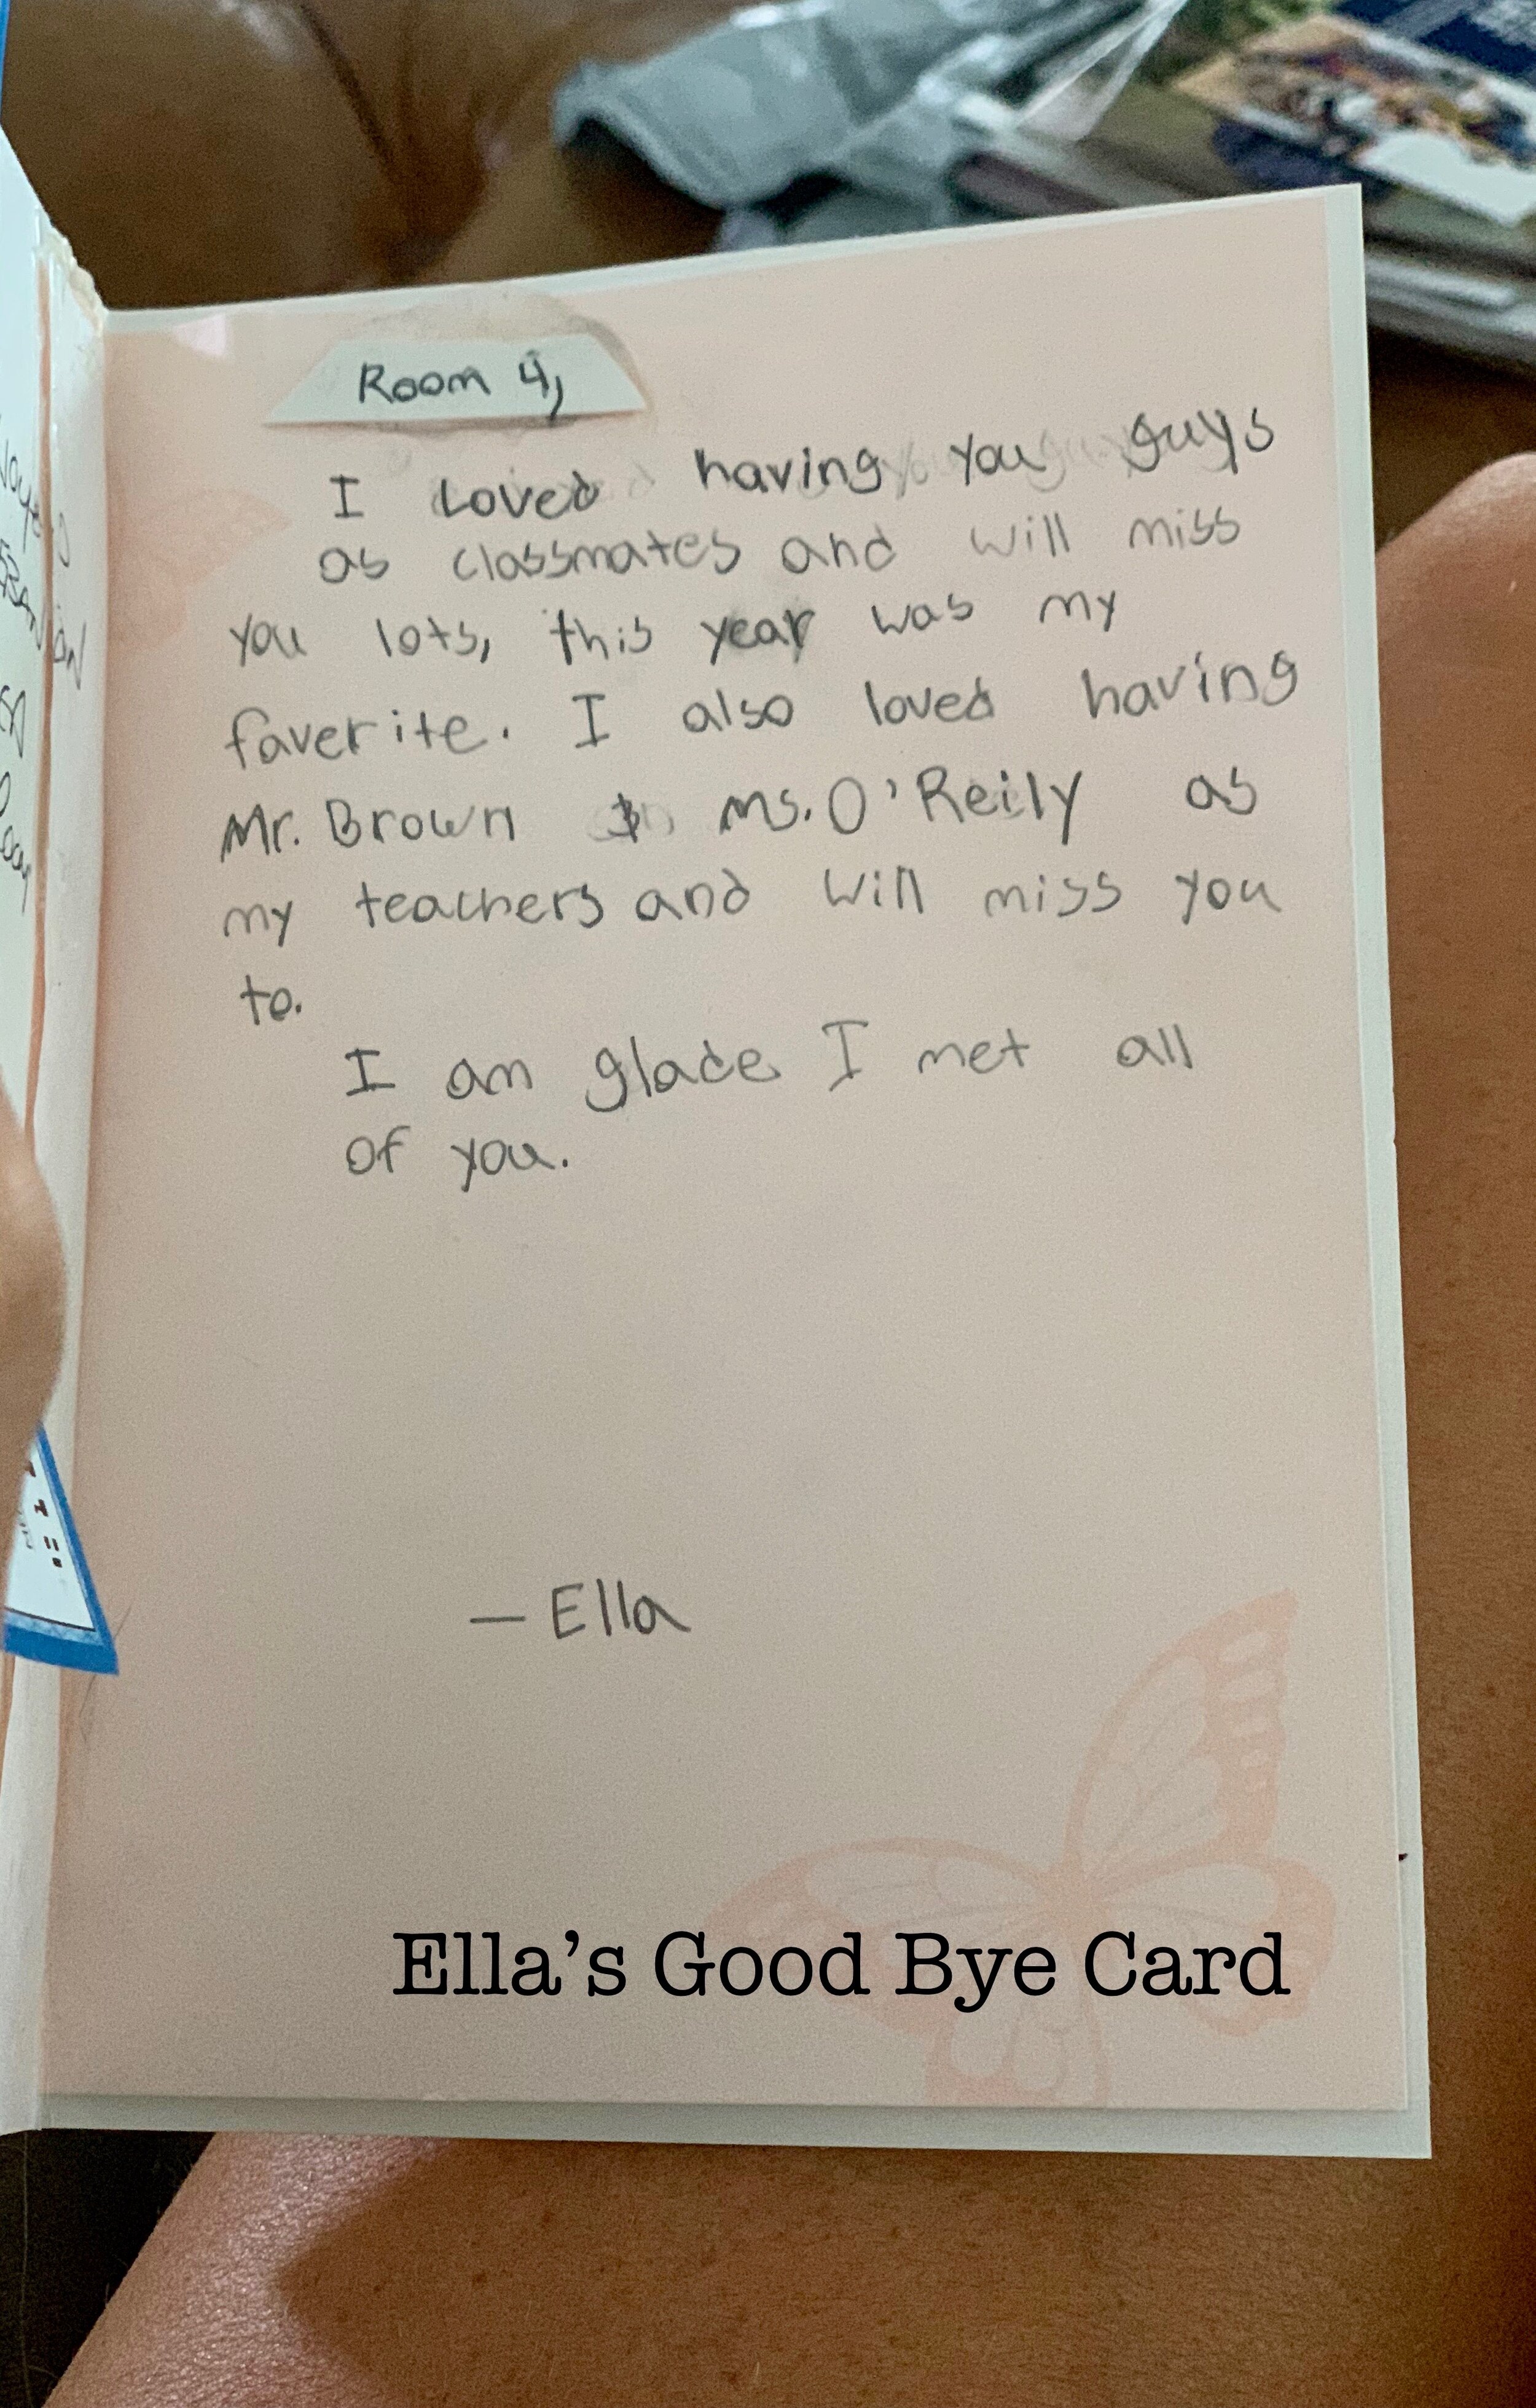 Room 4,
I Loved having you guys
as classmates and will miss
you lots, this year was my
faverite. I also loved having
Mr. Brown & Ms. O'Reily as
my teachers and will miss you
to.
I am glade I met all
of you.
— Ella
Ella’s Good Bye Card